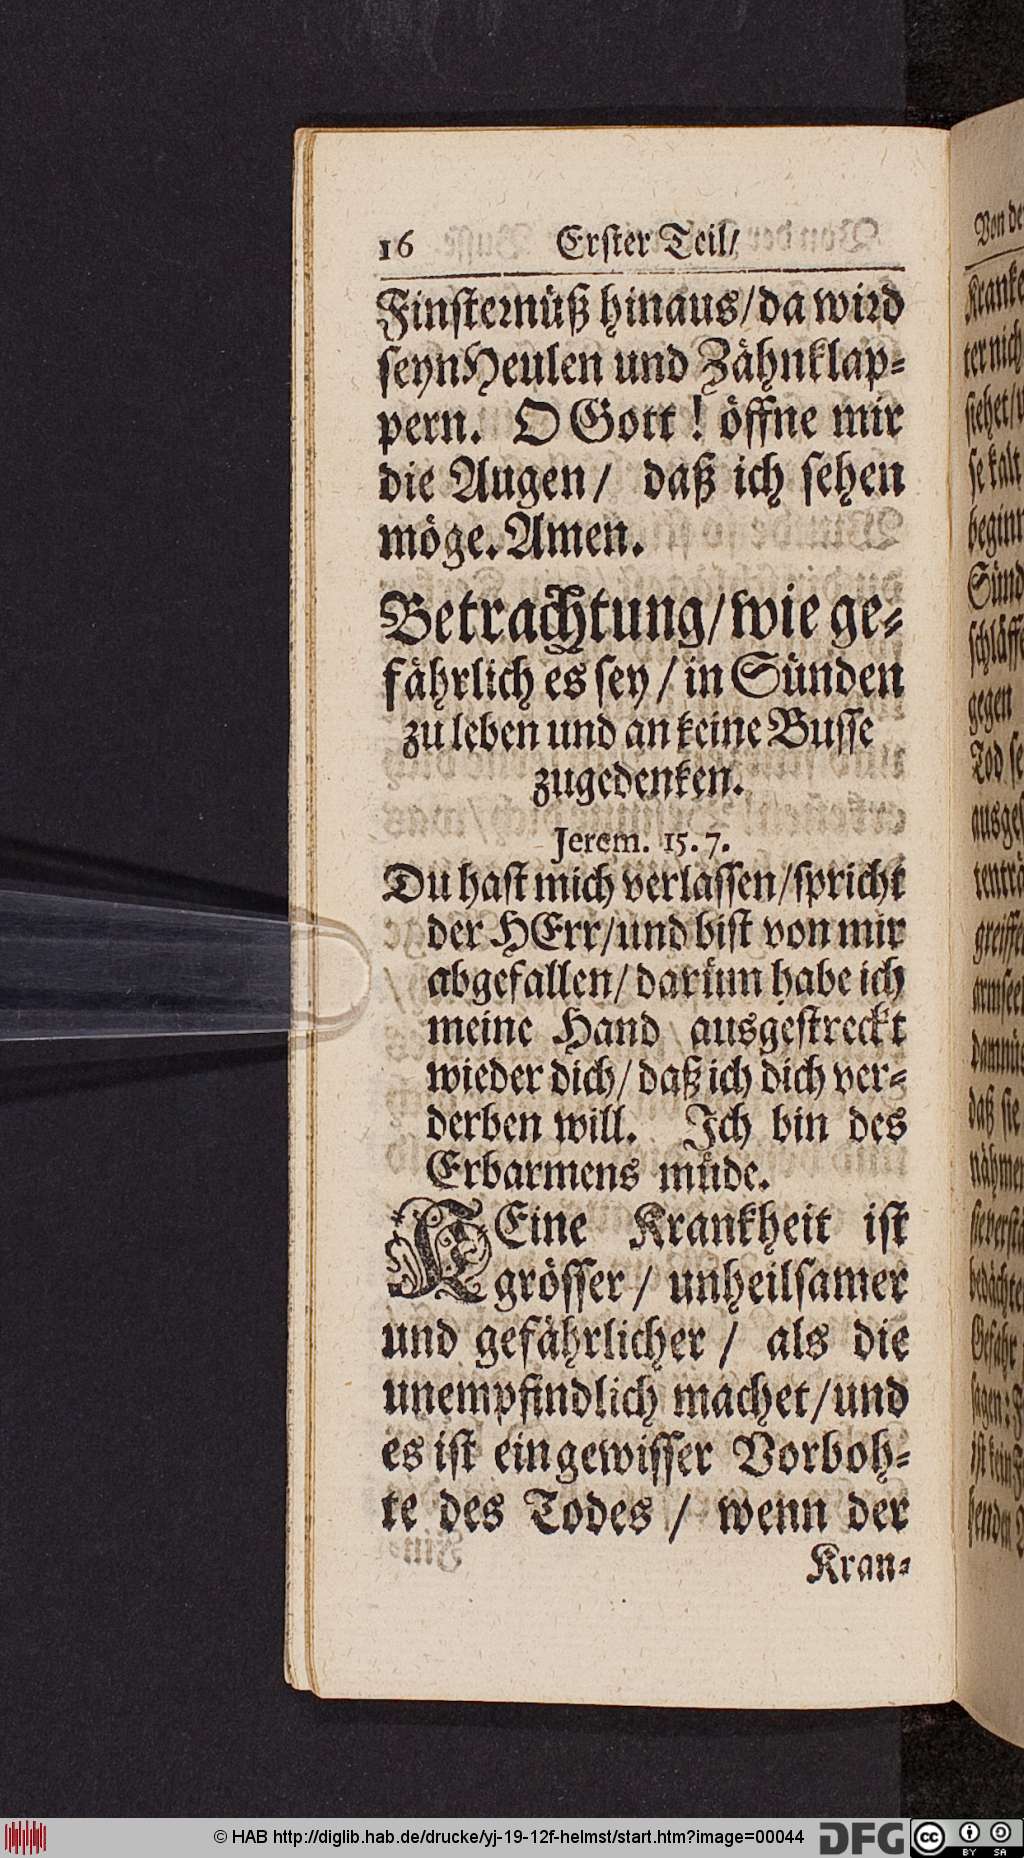 16 Erster Teil/
Finsternüß hinaus/da wird
seyn Heulen und Zähnklap-
pern. O Gott! öffne mir
die Augen/ daß ich sehen
möge. Amen.
Betrachtung/wie ge-
fährlich es sey/in Sünden
zu leben und an keine Busse
zugedenken.
Jerem. 15. 7.
Du hast mich verlassen/spricht
der HErr/und bist von mir
abgefallen/darüm habe ich
meine Hand ausgestreckt
wieder dich/daß ich dich ver-
derben will. Ich bin des
Erbarmens müde.
KEine Krankheit ist
grösser/ unheilsamer
und gefährlicher/ als die
unempfindlich machet/und
es ist ein gewisser Vorboh-
te des Todes/ wenn der
Kran-
Von de
Kranke
ter nich
siehet/
se kalt
beginn
Sünd
schläff
gegen
Tod se
ausges
tenträ
greiffe
armsee
daß sie
Gefahr
© HAB http://diglib.hab.de/drucke/yj-19-12f-helmst/start.htm?image=00044
DFG
cc BY SA